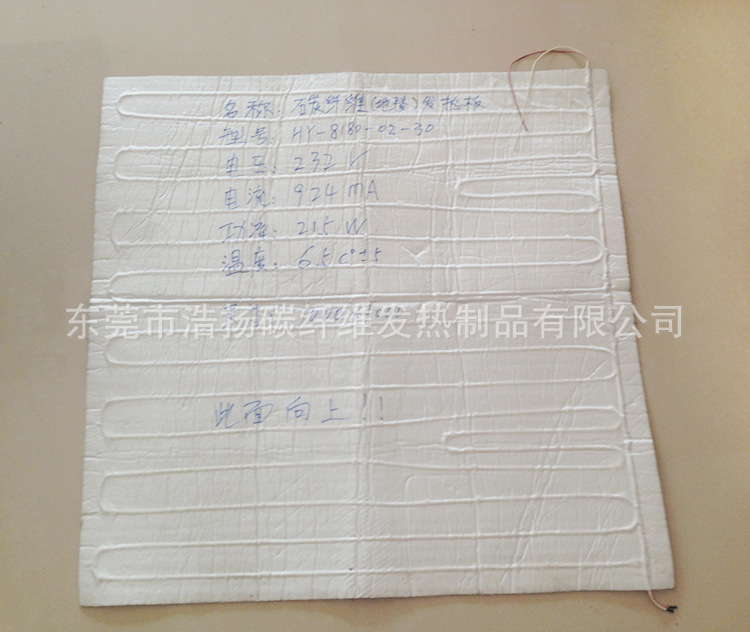 名称: 石炭纤维(地毯)发热板
型号: HY-8180-02-30
电压: 232V
电流: 924mA
功率: 215W
温度: 65C°±5
东莞市浩扬碳纤维发热制品有限公司
此面向上!!